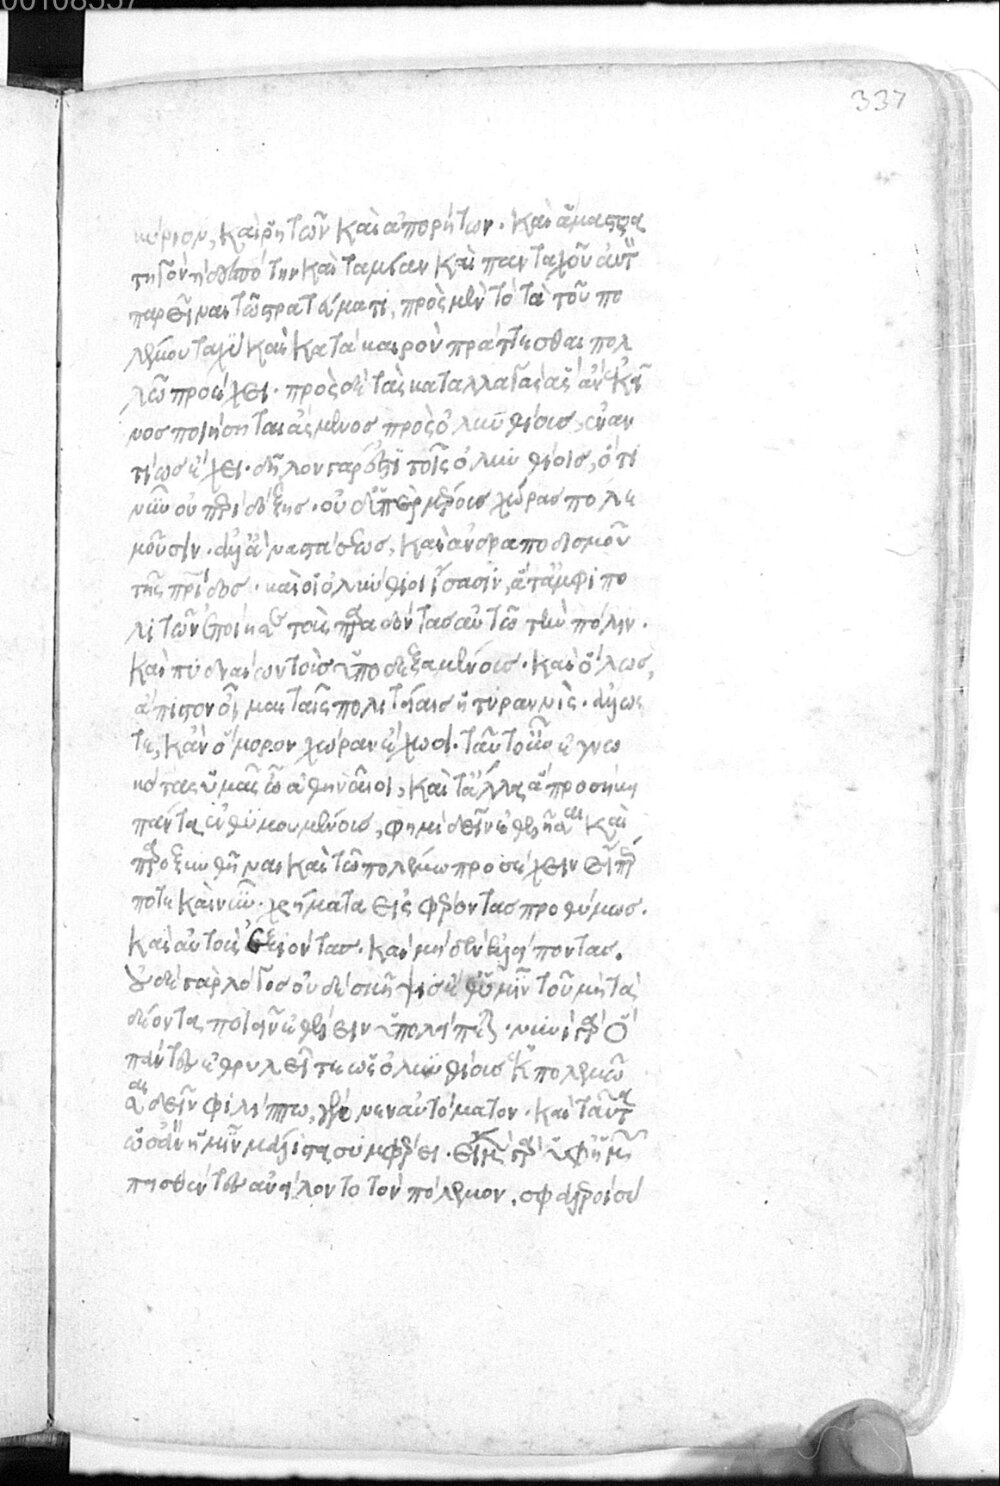 00108337
337
κύριον, καὶ ῥητῶν καὶ ἀπορήτων. καὶ ἅμα στρα
τηγὸν ἢ δεσπότην καὶ ταμίαν καὶ πανταχοῦ αὐτ
παρεῖναι τῶ στρατεύματι, πρὸς μὲν τὸ τὰ τοῦ πο
λέμου ταχὺ καὶ κατὰ καιρὸν πράττεσθαι πολ
λῶ προέχει. πρὸς δὲ τὰς καταλλαγὰς ἃς ἂν ἐκεῖ
νος ποιήσηται ἄσμενος πρὸς ὀλυνθίους, ἐναν
τίως ἔχει. δῆλον γάρ ἐστι τοῖς ὀλυνθίοις, ὅτι
νῦν οὐ περὶ δόξης. οὐδ' ὑπὲρ μέρους χώρας πολε
μοῦσιν. ἀλλ' ἀναστάσεως, καὶ ἀνδραποδισμοῦ
τῆς πατρίδος. καὶ οἱ ὀλύνθιοι ἴσασιν, ἅ τ' ἀμφιπο
λιτῶν ἐποίησε τοὺς παραδόντας αὐτῶ τὴν πόλιν.
καὶ πυδναίων τοὺς ὑποδεξαμένους. καὶ ὅλως,
ἄπιστον οἶμαι ταῖς πολιτείαις ἡ τυραννίς. ἄλλως
τε, κἂν ὅμορον χώραν ἔχωσι. ταῦτ' οὖν ἐγνω
κότας ὑμᾶς ὦ ἀθηναῖοι, καὶ τἄλλα ἃ προσήκει
πάντα ἐνθυμουμένους, φημὶ δεῖν ἐθελῆσαι καὶ
παροξυνθῆναι καὶ τῶ πολέμω προσέχειν εἴπερ
ποτε καὶ νῦν. χρήματα εἰσφέροντας προθύμως.
καὶ αὐτοὺς ἐξιόντας. καὶ μηδὲν ἐλλείποντας.
οὐδὲ γὰρ λόγος οὐδὲ σκῆψις ἔθ' ὑμῖν τοῦ μὴ τὰ
δέοντα ποιεῖν ἐθέλειν ὑπολείπεται. νυνὶ γὰρ ὃ
πάντες ἐθρυλεῖτε ὡς ὀλυνθίους ἐκπολεμῶ
σαι δεῖν φιλίππω, γέγονεν αὐτόματον. καὶ ταῦτα
ὡς ἂν ἡμῖν μάλιστα συμφέροι. εἰ μὲν γὰρ ὑφ' ἡμῶν
πεισθέντες ἀνείλοντο τὸν πόλεμον, σφαλεροὶ σύ